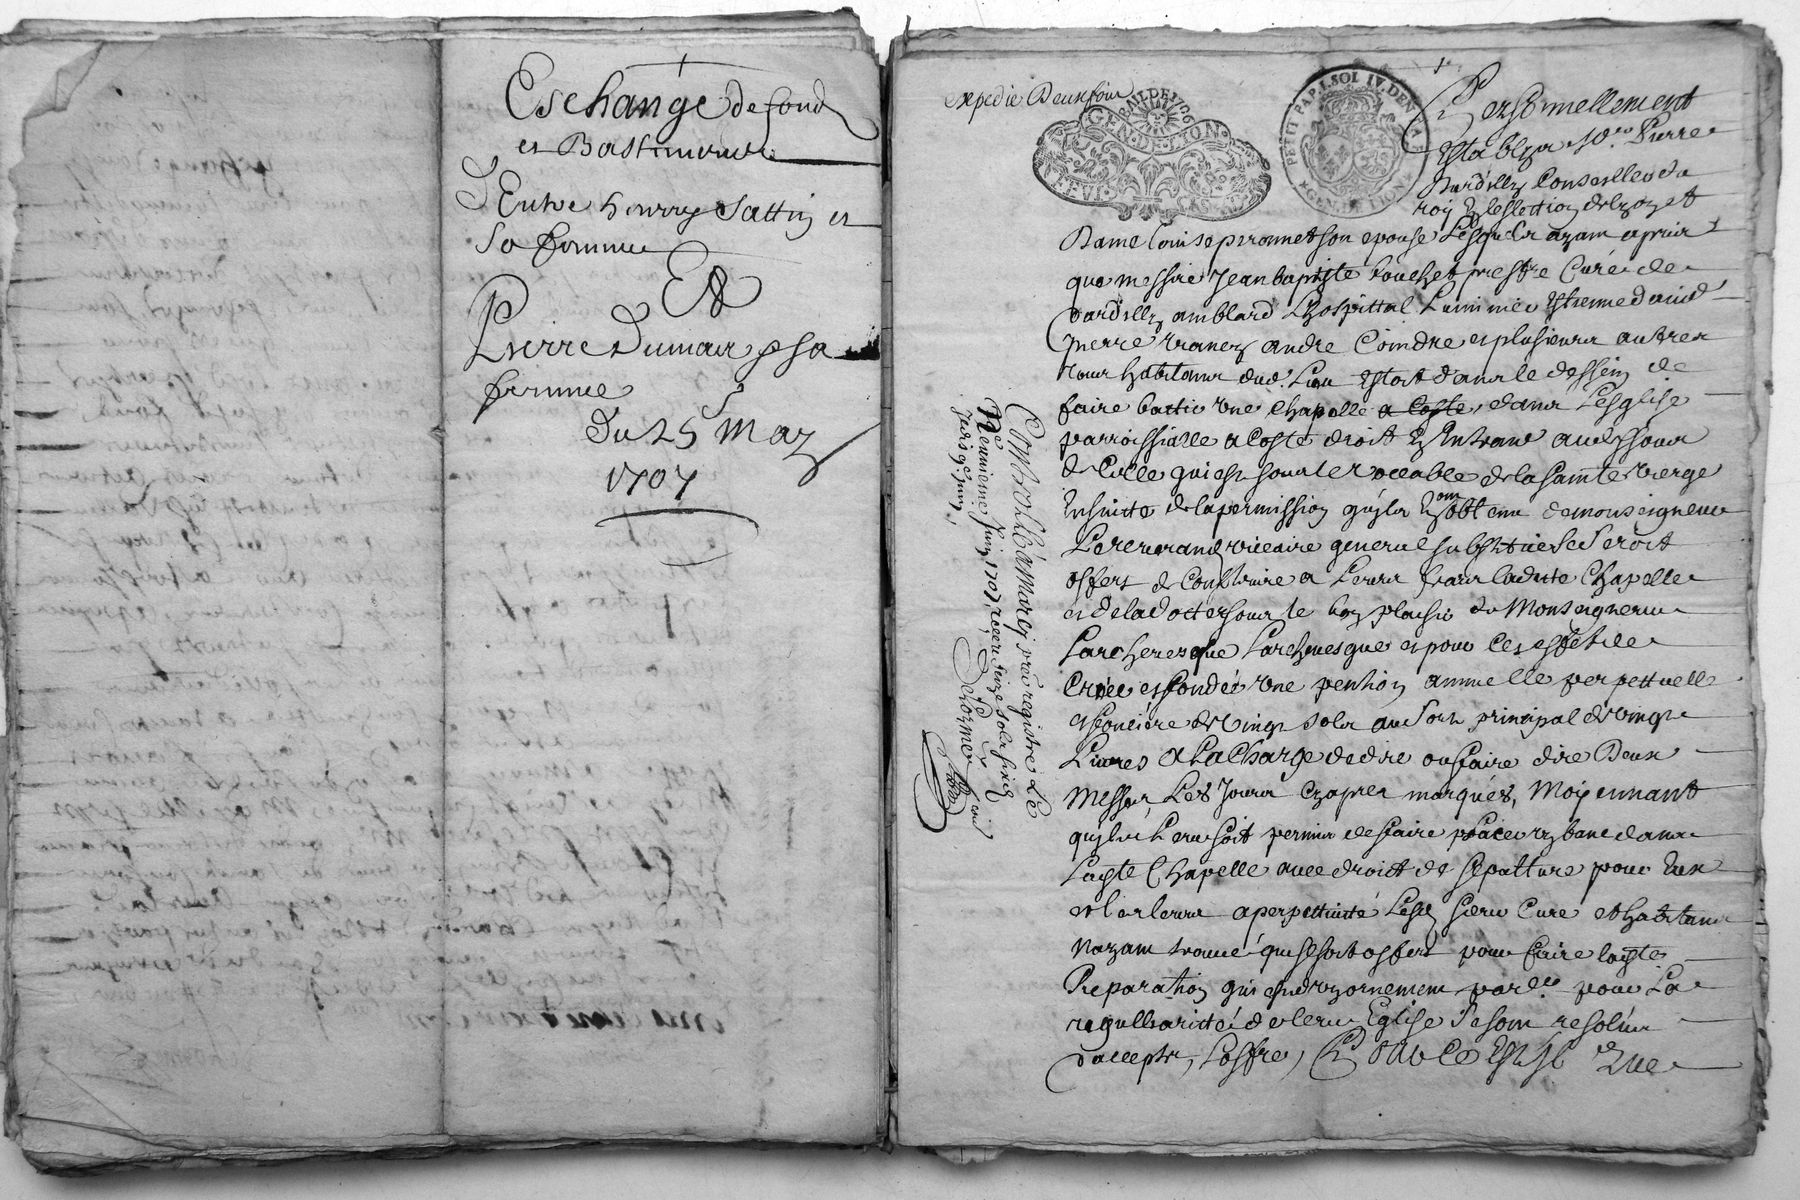 Eschange de fond
et Bastiments
D'Entre henry Sattin et
sa femme
Et
Pierre Dumas & sa
femme
du 25 May
1707
expedié Deux fois
BAIL DE
GEN. DE LION.
PETIT PAP. 1. SOL IV. DEN. LA F.
GEN. DE LION
Personnellement
Establys Sr. Pierre
Dardilly Conseiller du
roy En l'eslection de lyon et
Dame Louise peronnet son epouse Lesquels ayant apris
que messire Jean baptiste bouchet prestre Curé de
dardilly amblard Lhospittal
pierre andre Coindre et plusieurs autres
tous habitans dud. Lieu Estoit dans le dessein de
faire battir Une Chapelle a Coste, dans L'esglise
parroissialle a Coste droit En Entrant au dessous
de Celle qui est sous le Vocable de la Sainte Vierge
Ensuitte de la permission quils En ont obtenu de monseigneur
Le reverand Vicaire general substitué Se Seroit
offert de Construire a Leurs frais ladite Chapelle
et de la dotter sous le bon plaisir de Monseigneur
Larchevesque Larchevesque et pour Ces effet de
Créer et fondér Une pention annuelle perpettuelle
et fonciere de Vingt sols au Sort principal de Vingt
Livres a La Charge de dire ou faire dire Deux
Messes, Les Jours Cy apres marqués, Moyennant
quil Leur Soit permis de faire placer un banc dans
Ladte Chapelle avec droict de sepulture pour Eux
et les leurs a perpettuité Lesd. sieur Curé et habitans
Noyant trouvé que se soit offert pour faire ladte
Reparation qui est d'un ornement pour La
regullaritté de leur Eglise Se sont resolus
d'accepter, Loffre, Pour Ce Est Il Que
Controllé a Marcy, prés registre Le
Neuvieme Juin 1707, receu seize sols six d
Delorme